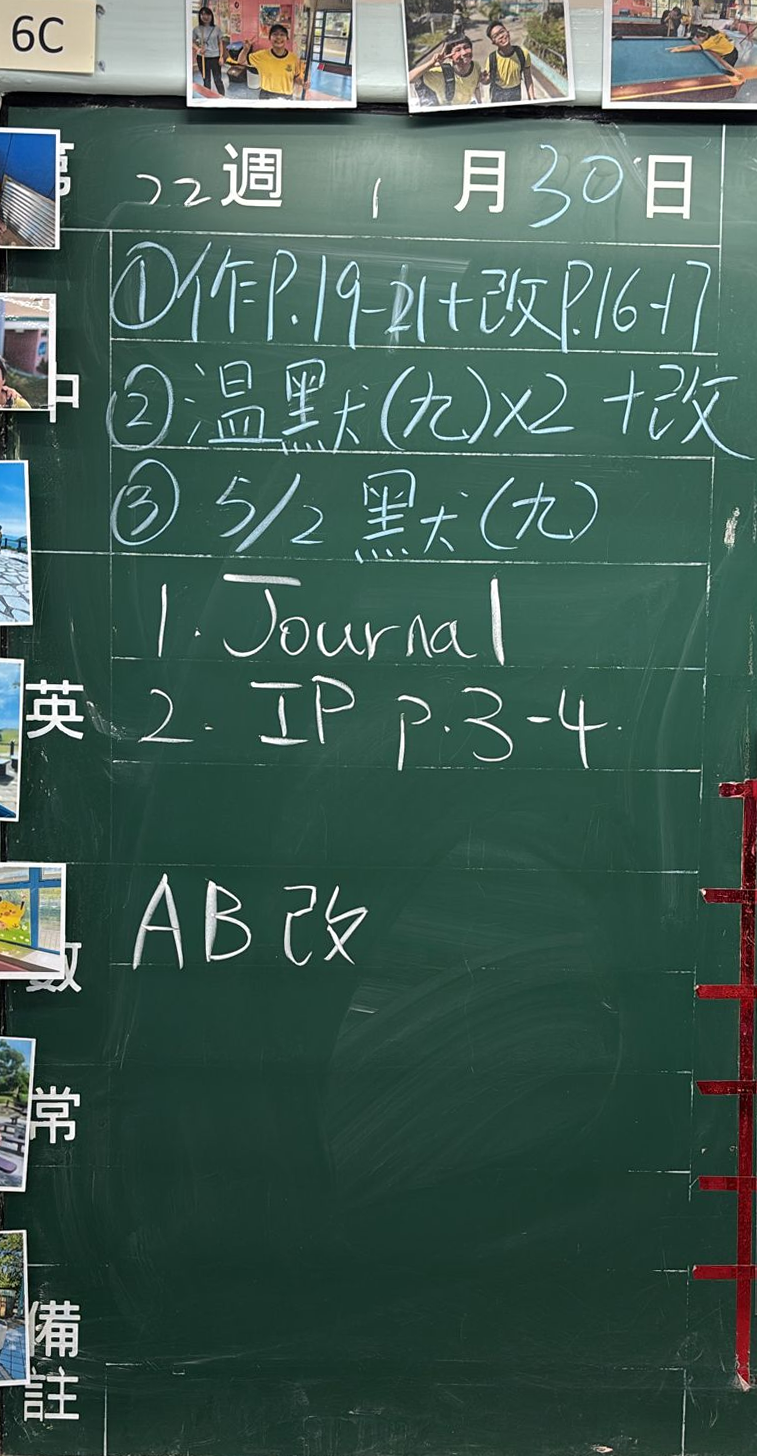 6C
第 22 週 1 月 30 日
中
①作P.19-21+改P.16-17
②温默(九)x2 +改
③ 5/2 默(九)
英
1. Journal
2. IP p.3-4.
數
AB改
常
備註